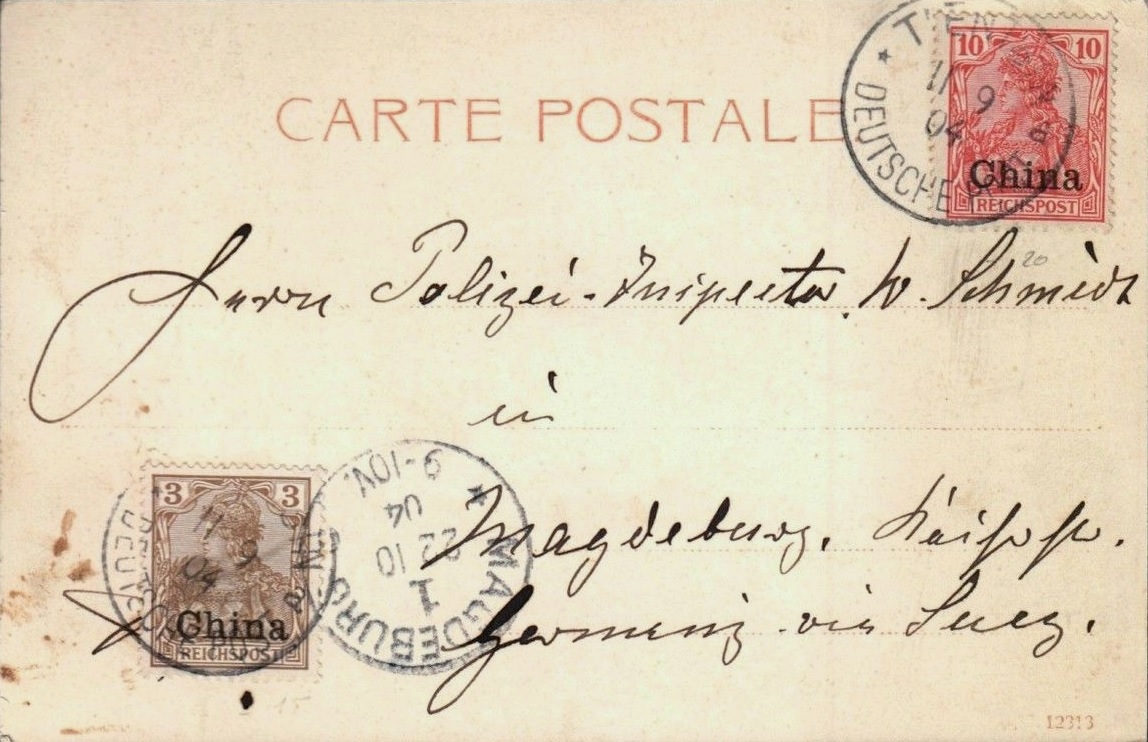 CARTE POSTALE
TIEN
11 9
04
DEUTSCHE
10 10
China
REICHSPOST
20
Herrn Polizei-Inspector W. Schmidt
in
Magdeburg,
Germany via Suez.
3 3
China
REICHSPOST
11
9
04
MAGDEBURG
1
22 10
04
9-10V.
*
15
12313